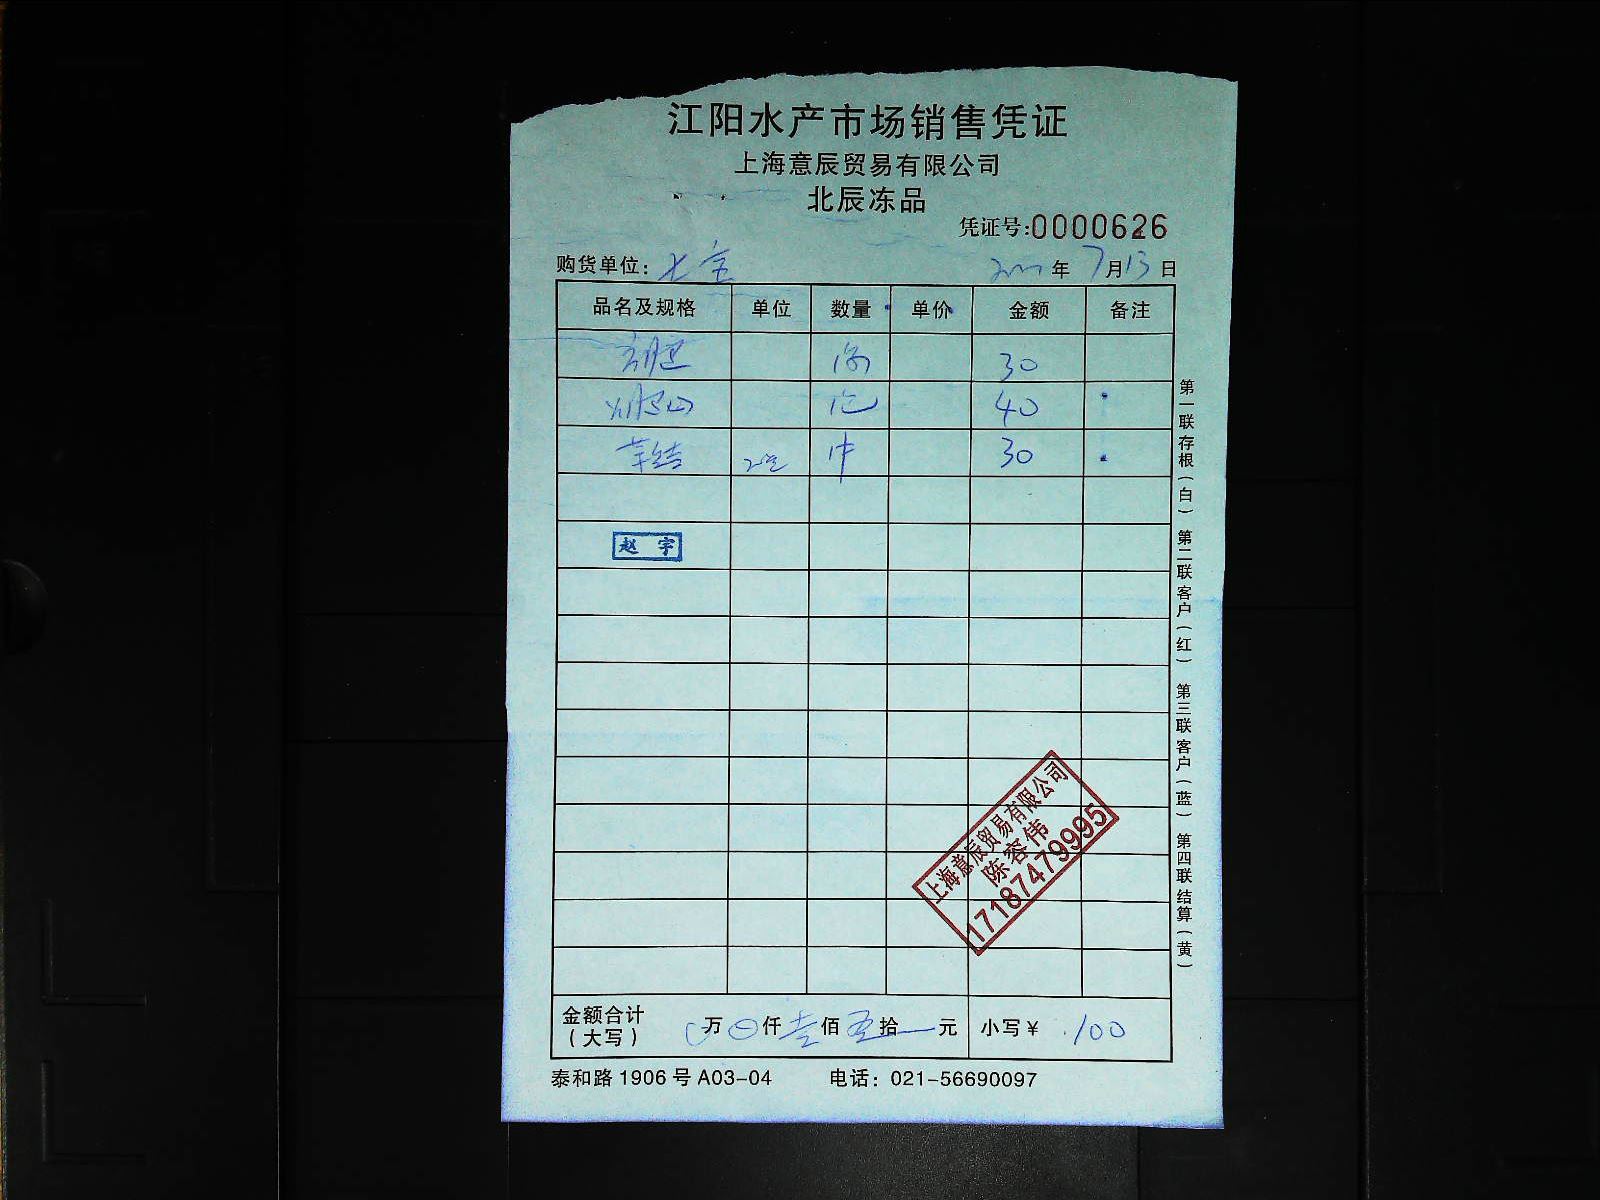 江阳水产市场销售凭证
上海意辰贸易有限公司
北辰冻品
凭证号:0000626
购货单位:
年 7月13日
品名及规格 单位 数量 单价 金额 备注
30
40
30
赵宇
上海意辰贸易有限公司
陈容伟
17187479995
金额合计 万 仟 壹佰 拾 元 小写¥ 100
(大写)
泰和路1906号A03-04 电话:021-56690097
第一联存根(白) 第二联客户(红) 第三联客户(蓝) 第四联结算(黄)